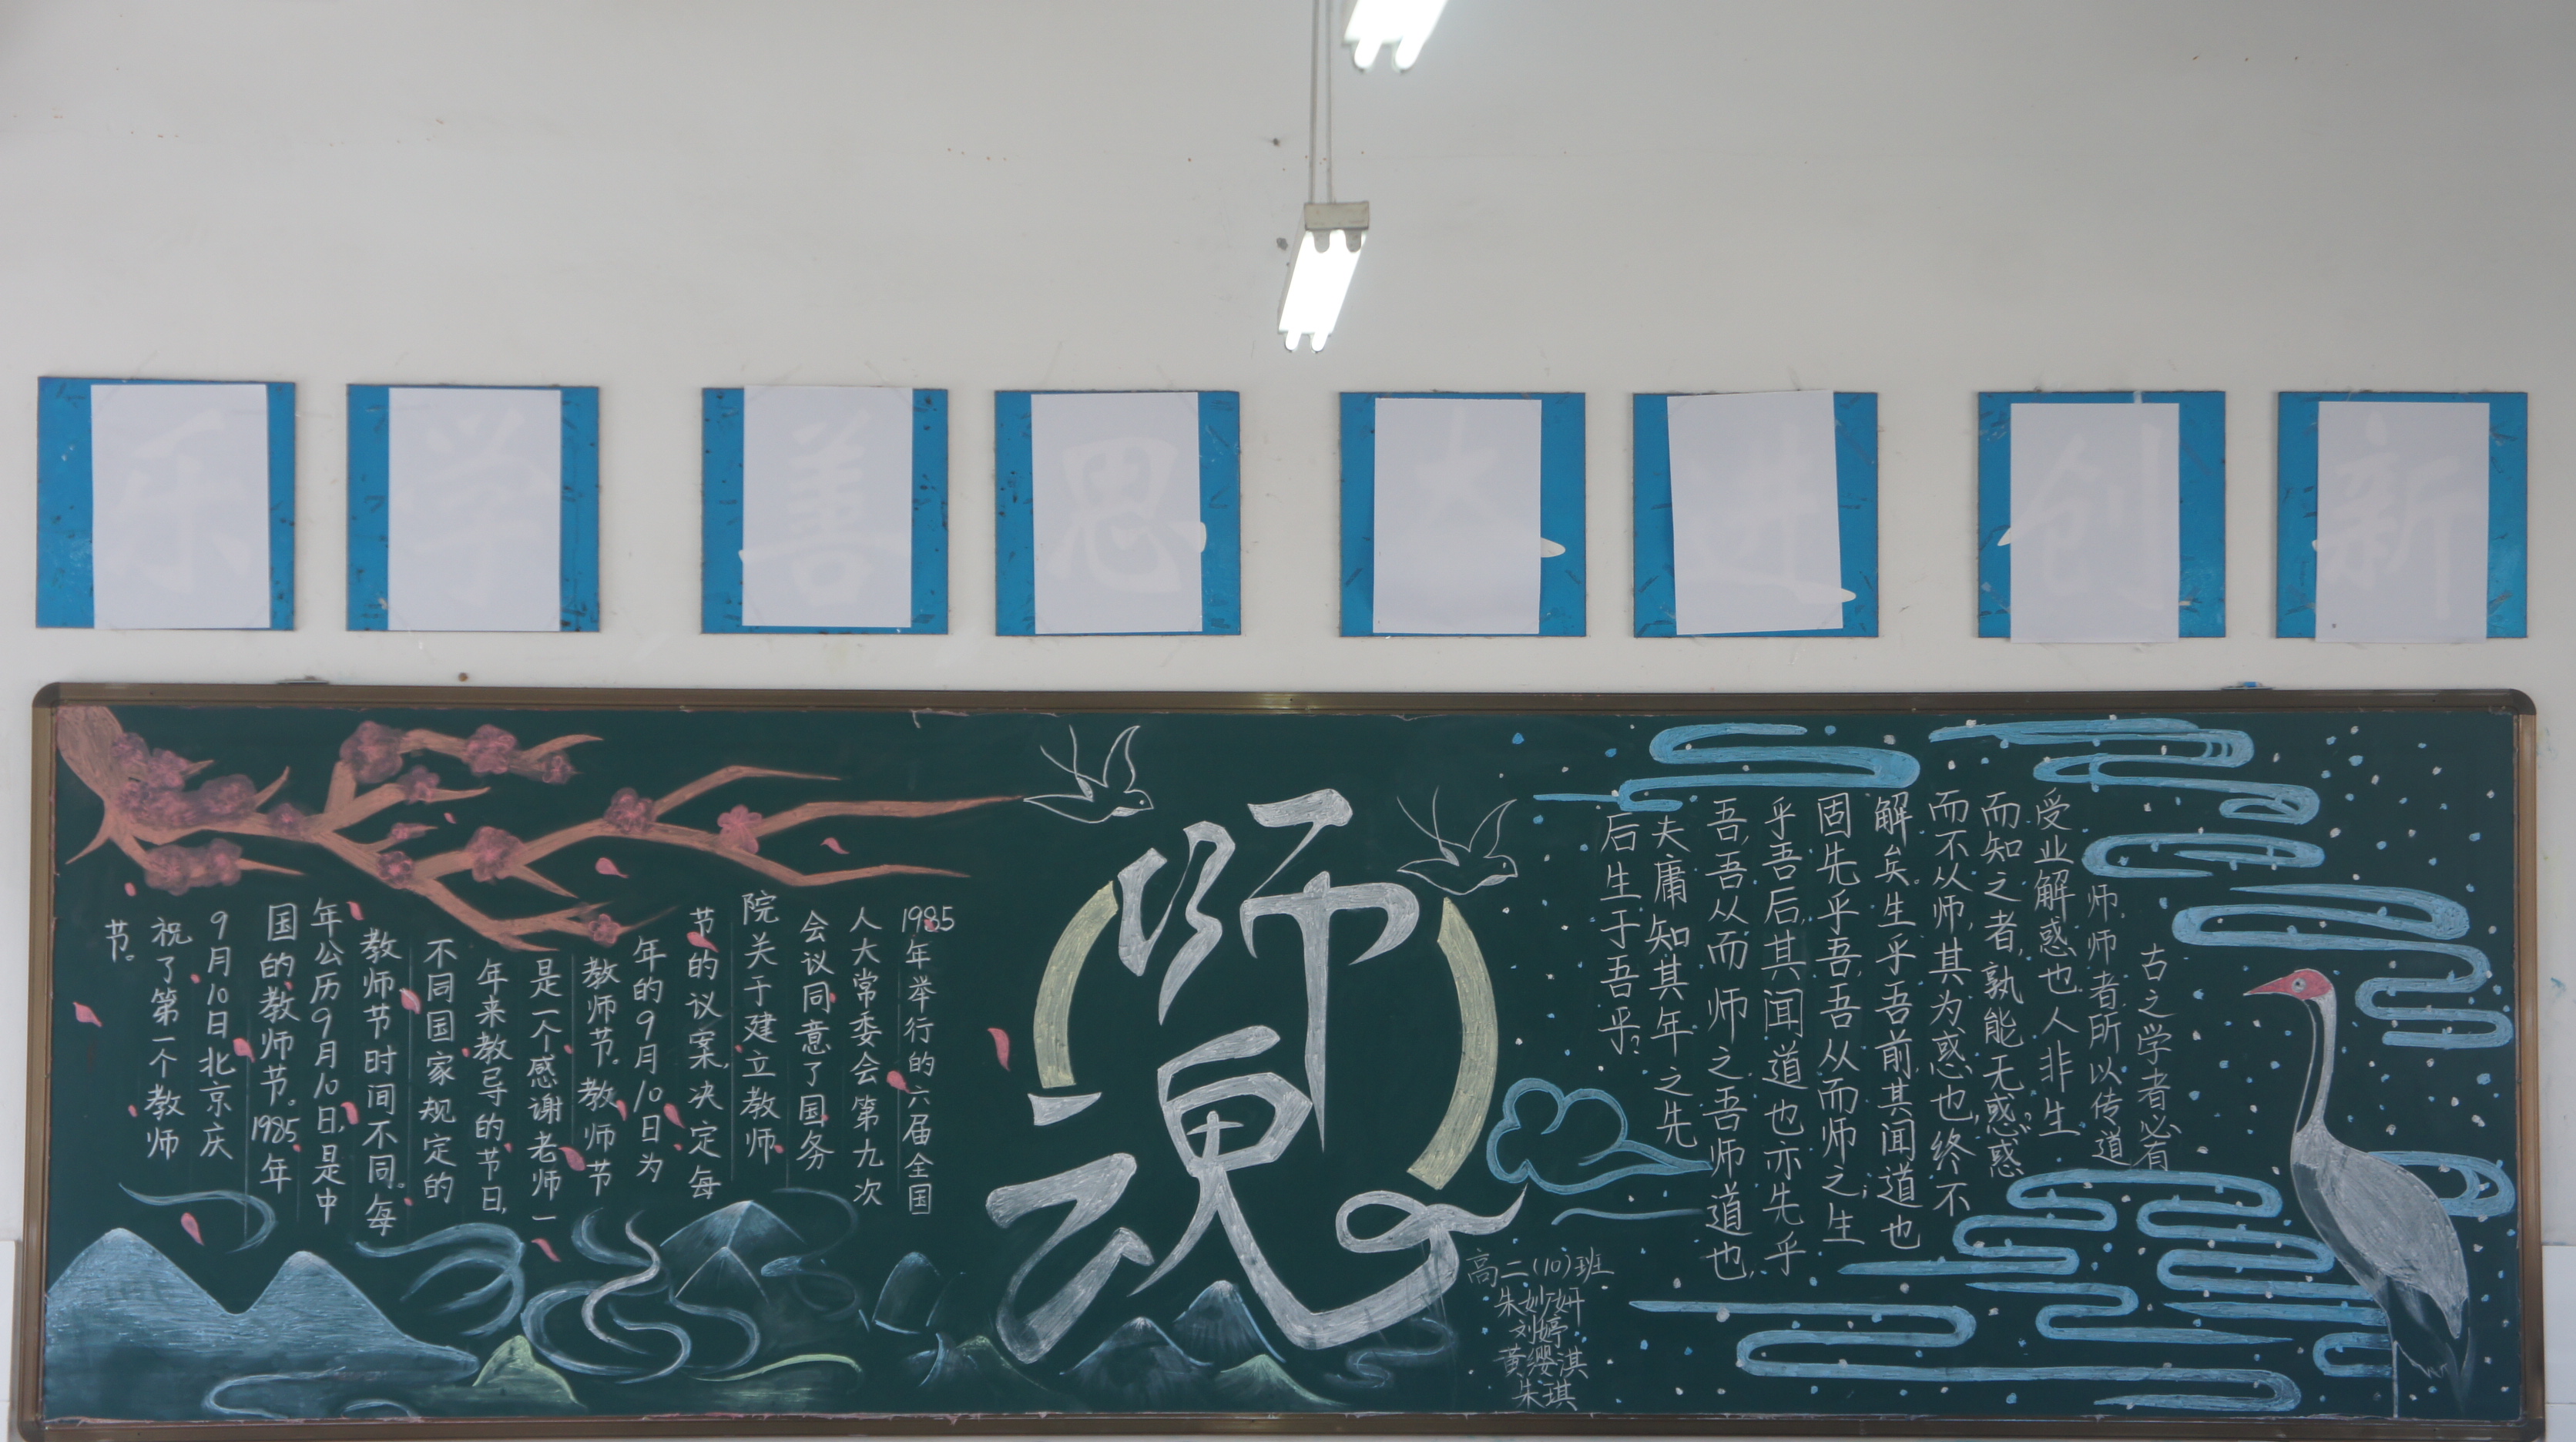 乐学善思 进创新
师魂
1985年举行的六届全国
人大常委会第九次
会议同意了国务
院关于建立教师
节的议案,决定每
年的9月10日为
教师节。教师节
是一个感谢老师一
年来教导的节日,
不同国家规定的
教师节时间不同。每
年公历9月10日,是中
国的教师节。1985年
9月10日北京庆
祝了第一个教师
节。
古之学者必有
师,师者所以传道
受业解惑也人非生
而知之者,孰能无惑?惑
而不从师,其为惑也,终不
解矣。生乎吾前其闻道也
固先乎吾,吾从而师之;生
乎吾后,其闻道也亦先乎
吾,吾从而师之吾师道也,
夫庸知其年之先
后生于吾乎?
高二(10)班
朱妙妍
刘婷
黄缨淇
朱琪